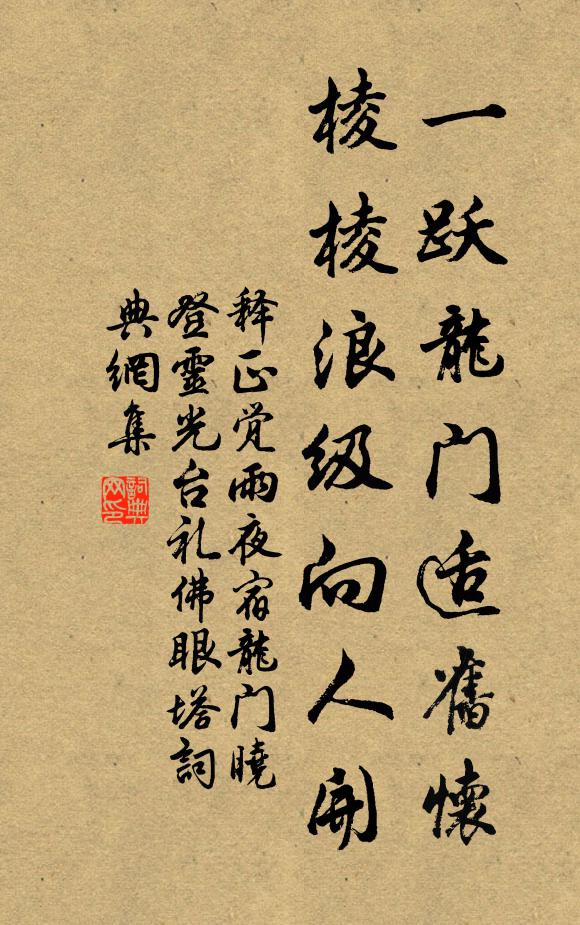 一跃龍门适舊懷
棱棱浪级向人開
释正觉雨夜宿龍门曉
登靈光台礼佛眼塔詞
典網集
詞典网印